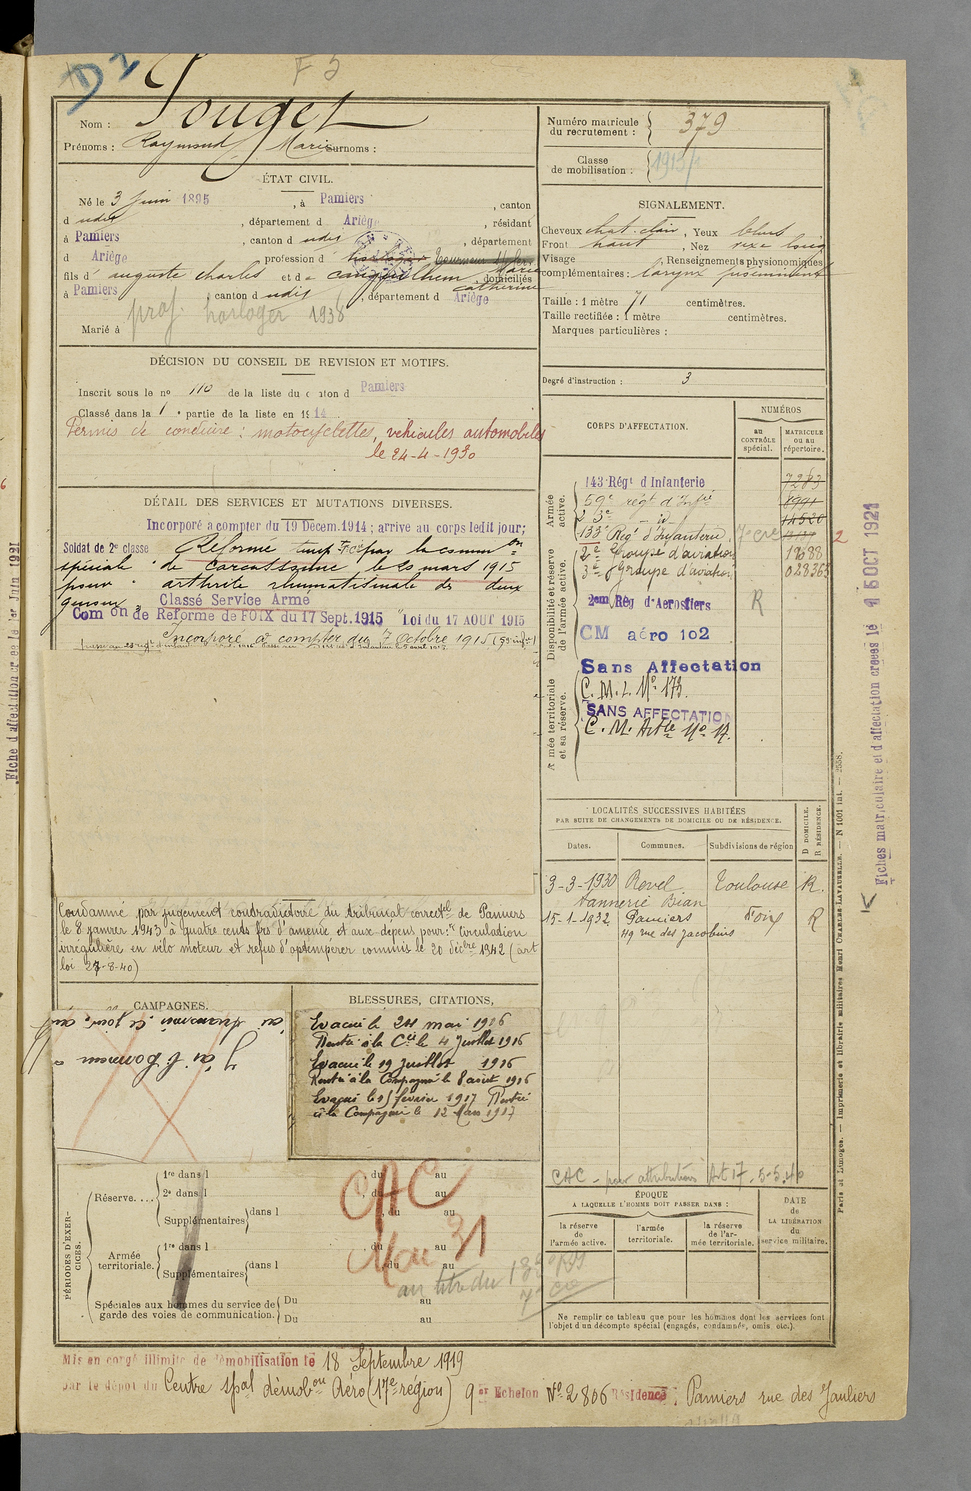 D2
F 5
Nom : Pouget
Prénoms : Raymond Marie Surnoms :
Numéro matricule du recrutement : 379
Classe de mobilisation : 1915
ÉTAT CIVIL.
Né le 3 Juin 1895, à Pamiers, canton
d udit, département d Ariège, résidant
à Pamiers, canton d udit, département
d Ariège, profession d horloger Tourneur
fils d' auguste charles et de Canguilhem Marie domiciliés
Catherine
à Pamiers, canton d udit, département d Ariège
Marié à
prof. horloger 1938
SIGNALEMENT.
Cheveux chat. clair, Yeux bleus
Front haut, Nez
Visage, Renseignements physionomiques
complémentaires : larynx proéminent
Taille : 1 mètre 71 centimètres.
Taille rectifiée : 1 mètre centimètres.
Marques particulières :
Degré d'instruction : 3
DÉCISION DU CONSEIL DE REVISION ET MOTIFS.
Inscrit sous le no 110 de la liste du canton d Pamiers
Classé dans la 1e partie de la liste en 1914
Permis de conduire : motocyclettes, véhicules automobiles
le 24-4-1930
DÉTAIL DES SERVICES ET MUTATIONS DIVERSES.
Incorporé a compter du 19 Décem. 1914 ; arrive au corps ledit jour;
Soldat de 2e classe Réformé temp. par la common
spéciale de Carcassonne le 20 mars 1915
pour arthrite rhumatismale des deux
genoux. Classé Service Armé
Comon de Réforme de FOIX du 17 Sept. 1915 Loi du 17 AOUT 1915
Incorporé à compter du 7 Octobre 1915
Condamné par jugement contradictoire du tribunal correctel de Pamiers
le 8 janvier 1943 à quatre cents frs d'amende et aux dépens pour : circulation
irrégulière en vélo moteur et refus d'optempérer commis le 20 décbre 1942 (art
loi 27-8-40)
CORPS D'AFFECTATION.
NUMÉROS
au CONTRÔLE spécial.
MATRICULE ou au répertoire.
Armée active.
143 Régt d'Infanterie 7283
59e régt d'Infie
23e - id - 14520
133e Régt d'Infanterie
Disponibilité et réserve de l'armée active.
2e Groupe d'aviation 12688
3e groupe d'aviation 028363
2em Rég d'Aerostiers R
CM aéro 102
Sans Affectation
Armée territoriale et sa réserve.
C. M. I. No 173.
SANS AFFECTATION
C. M. Artie No 17.
LOCALITÉS SUCCESSIVES HABITÉES
PAR SUITE DE CHANGEMENTS DE DOMICILE OU DE RÉSIDENCE.
Dates. Communes. Subdivisions de région
D DOMICILE. R RÉSIDENCE.
3-3-1930 Revel Toulouse R.
tannerie Bian
15-1-1932 Pamiers Foix R
49 rue des Jacobins
CAMPAGNES.
BLESSURES, CITATIONS,
Evacué le 24 mai 1916
Rentré à la Cie le 4 Juillet 1916
Evacué le 19 Juillet 1916
Rentré à la Compagnie le 8 août 1916
Evacué le 15 février 1917 Rentré
à la Compagnie le 12 Mars 1917
PÉRIODES D'EXERCICES.
Réserve....
1re dans l du au
2e dans l du au
Supplémentaires dans l du au
Armée territoriale.
1re dans l du au
Supplémentaires dans l du au
Spéciales aux hommes du service de garde des voies de communication.
Du au
Du au
CAC
au titre du
CAC - pour attribution Art 17. 5-5-40
ÉPOQUE
A LAQUELLE L'HOMME DOIT PASSER DANS :
la réserve de l'armée active.
l'armée territoriale.
la réserve de l'armée territoriale.
DATE de LA LIBÉRATION du service militaire.
Ne remplir ce tableau que pour les hommes dont les services font
l'objet d'un décompte spécial (engagés, condamnés, omis etc.).
Mis en congé illimité de démobilisation le 18 Septembre 1919
par le dépôt du Centre spal démobon Aéro (17e région) 9 er Echelon No 2806 Résidence : Pamiers rue des Jauliers
Fiche d'affectation créée le 1er Juin 1921
Fiches matriculaire et d'affectation créées le 15 OCT 1921
Paris et Limoges. — Imprimerie et librairie militaires Henri CHARLES-LAVAUZELLE. — N 1001 Int. — 2558.